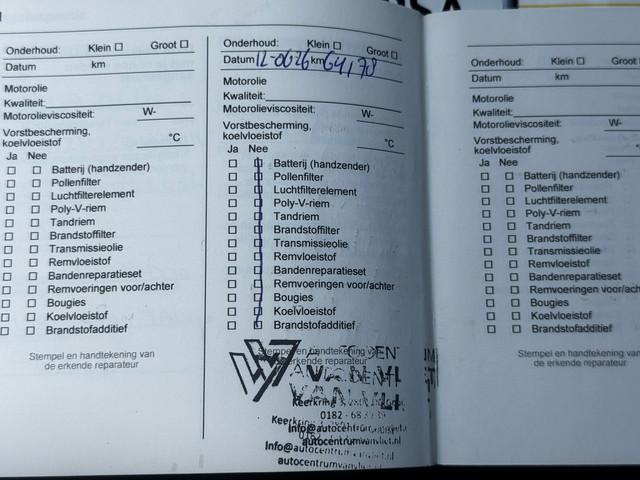 Onderhoud: Klein Groot
Datum km
Motorolie
Kwaliteit:
Motorolieviscositeit: W-
Vorstbescherming,
koelvloeistof °C
Ja Nee
Batterij (handzender)
Pollenfilter
Luchtfilterelement
Poly-V-riem
Tandriem
Brandstoffilter
Transmissieolie
Remvloeistof
Bandenreparatieset
Remvoeringen voor/achter
Bougies
Koelvloeistof
Brandstofadditief
Stempel en handtekening van
de erkende reparateur
Onderhoud: Klein Groot
Datum km
Motorolie
Kwaliteit:
Motorolieviscositeit: W-
Vorstbescherming,
koelvloeistof °C
Ja Nee
Batterij (handzender)
Pollenfilter
Luchtfilterelement
Poly-V-riem
Tandriem
Brandstoffilter
Transmissieolie
Remvloeistof
Bandenreparatieset
Remvoeringen voor/achter
Bougies
Koelvloeistof
Brandstofadditief
Stempel en handtekening
erkende reparateur
Keerkring
0182
Keerkring
Info@autocentrumvanvliet.nl
autocentrumvanvliet.nl
Info@autocentrum
autocentrumvanvliet
Onderhoud: Klein Groot
Datum km
Motorolie
Kwaliteit:
Motorolieviscositeit: W-
Vorstbescherming,
koelvloeistof
Ja Nee
Batterij (handzender)
Pollenfilter
Luchtfilterelement
Poly-V-riem
Tandriem
Brandstoffilter
Transmissieolie
Remvloeistof
Bandenreparatieset
Remvoeringen voor/achter
Bougies
Koelvloeistof
Brandstofadditief
Stempel en handtekening van
de erkende reparateur